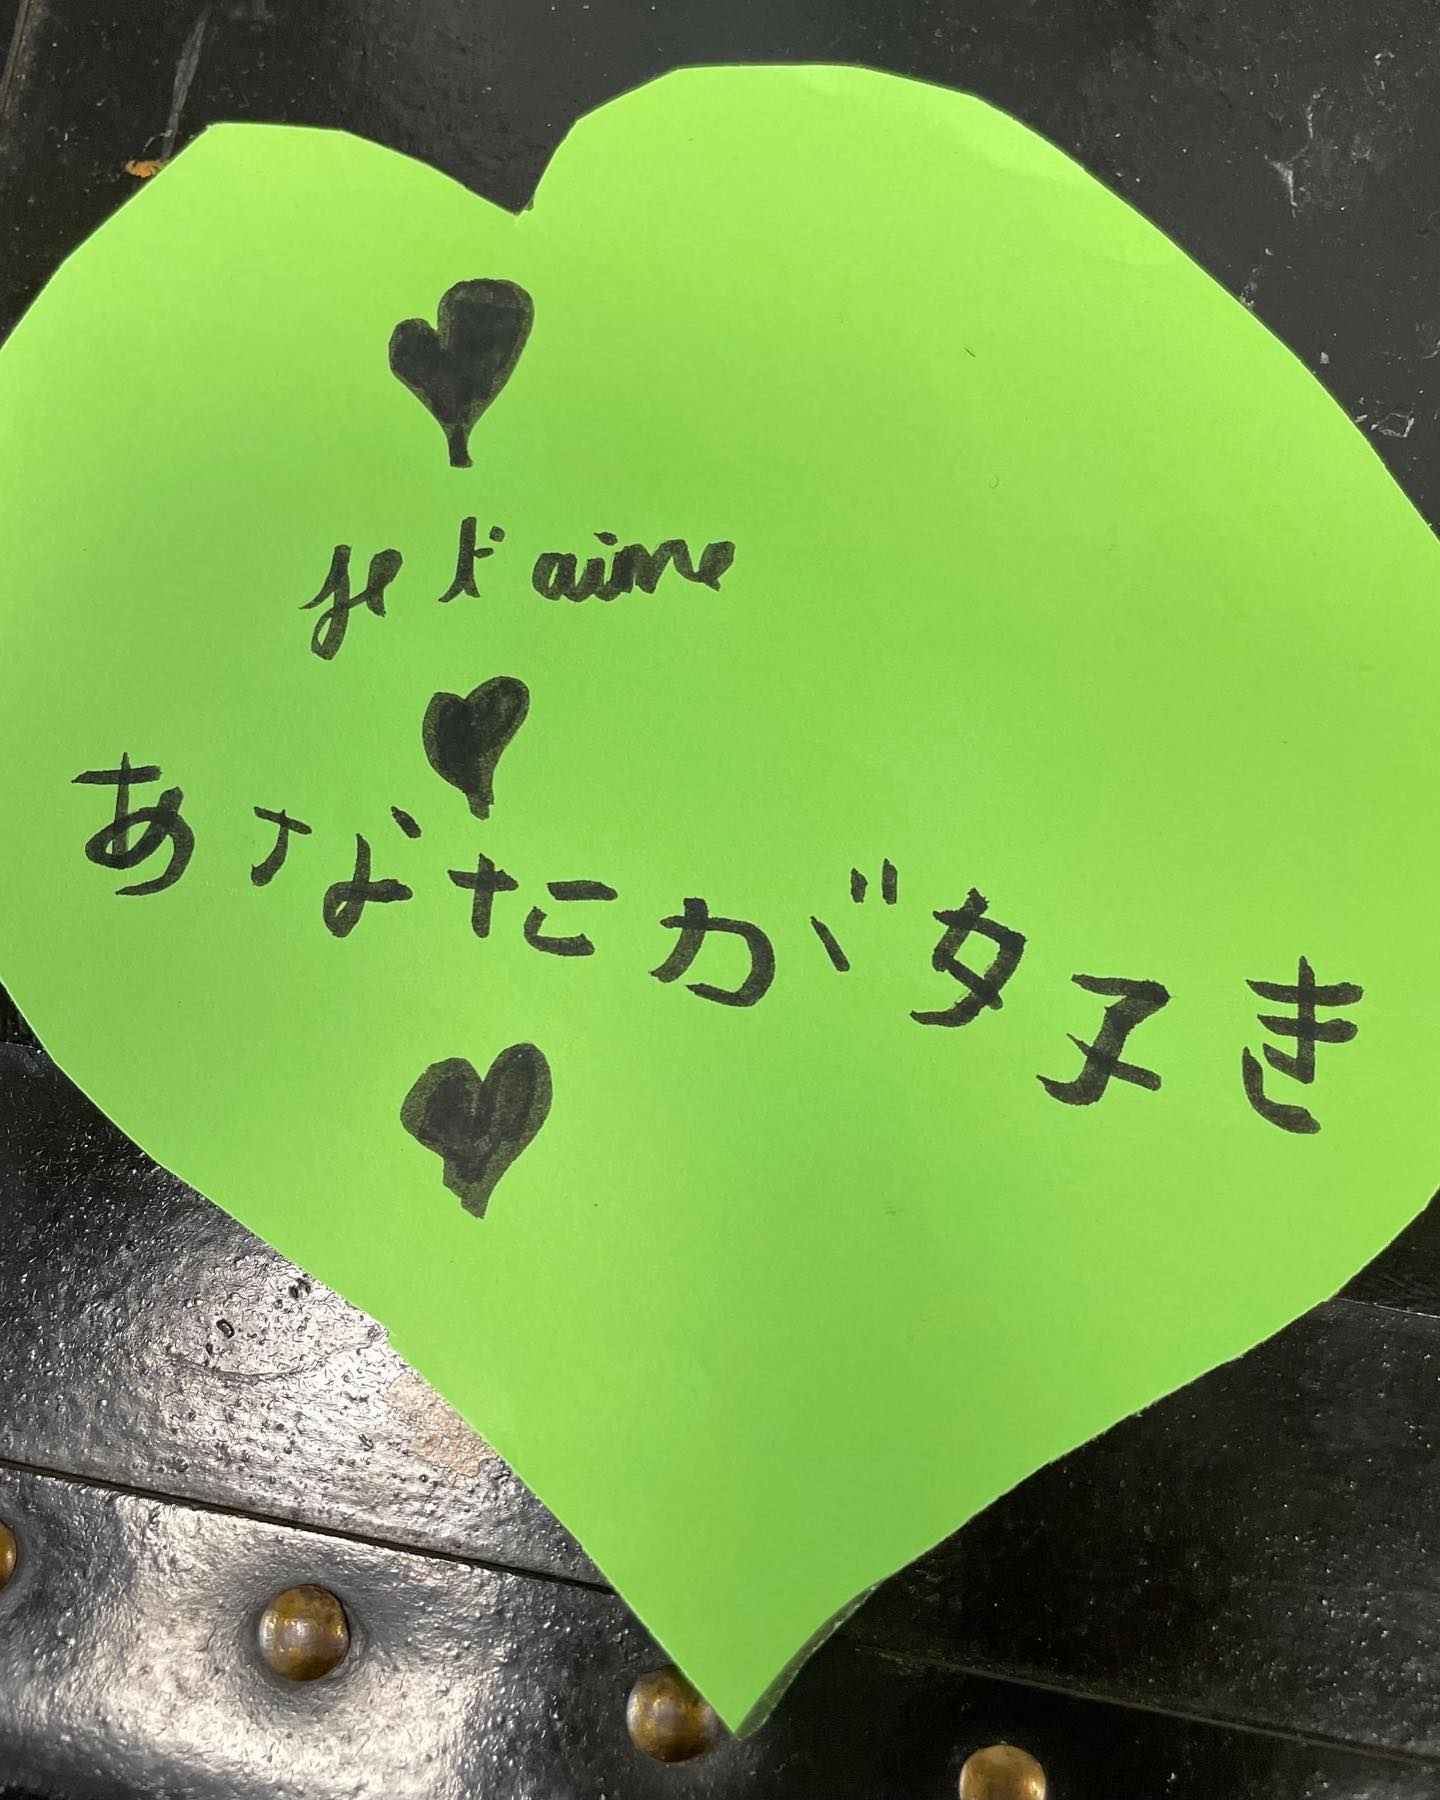 je t'aime
あなたが好き